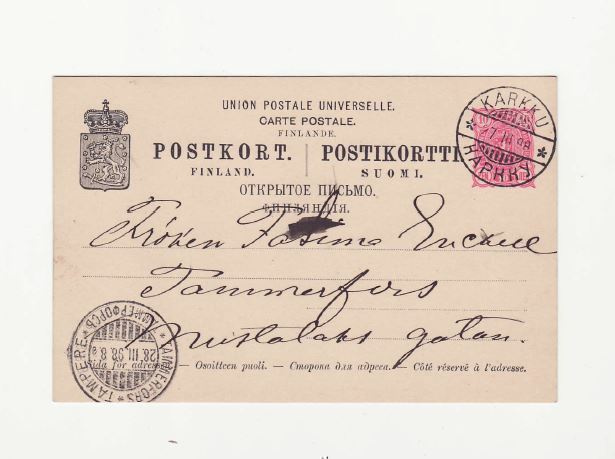 UNION POSTALE UNIVERSELLE.
CARTE POSTALE.
FINLANDE.
POSTKORT. POSTIKORTTI.
FINLAND. SUOMI.
ОТКРЫТОЕ ПИСЬМО.
ФИНЛЯНДІЯ.
KARKKU
Fröken
Tammerfors
gatan.
TAMPERE * TAMMERFORS * ТАММЕРФОРСЪ
28.III.98.
Sida för adressen — Osoitteen puoli. — Сторона для адреса. — Côté réservé à l'adresse.